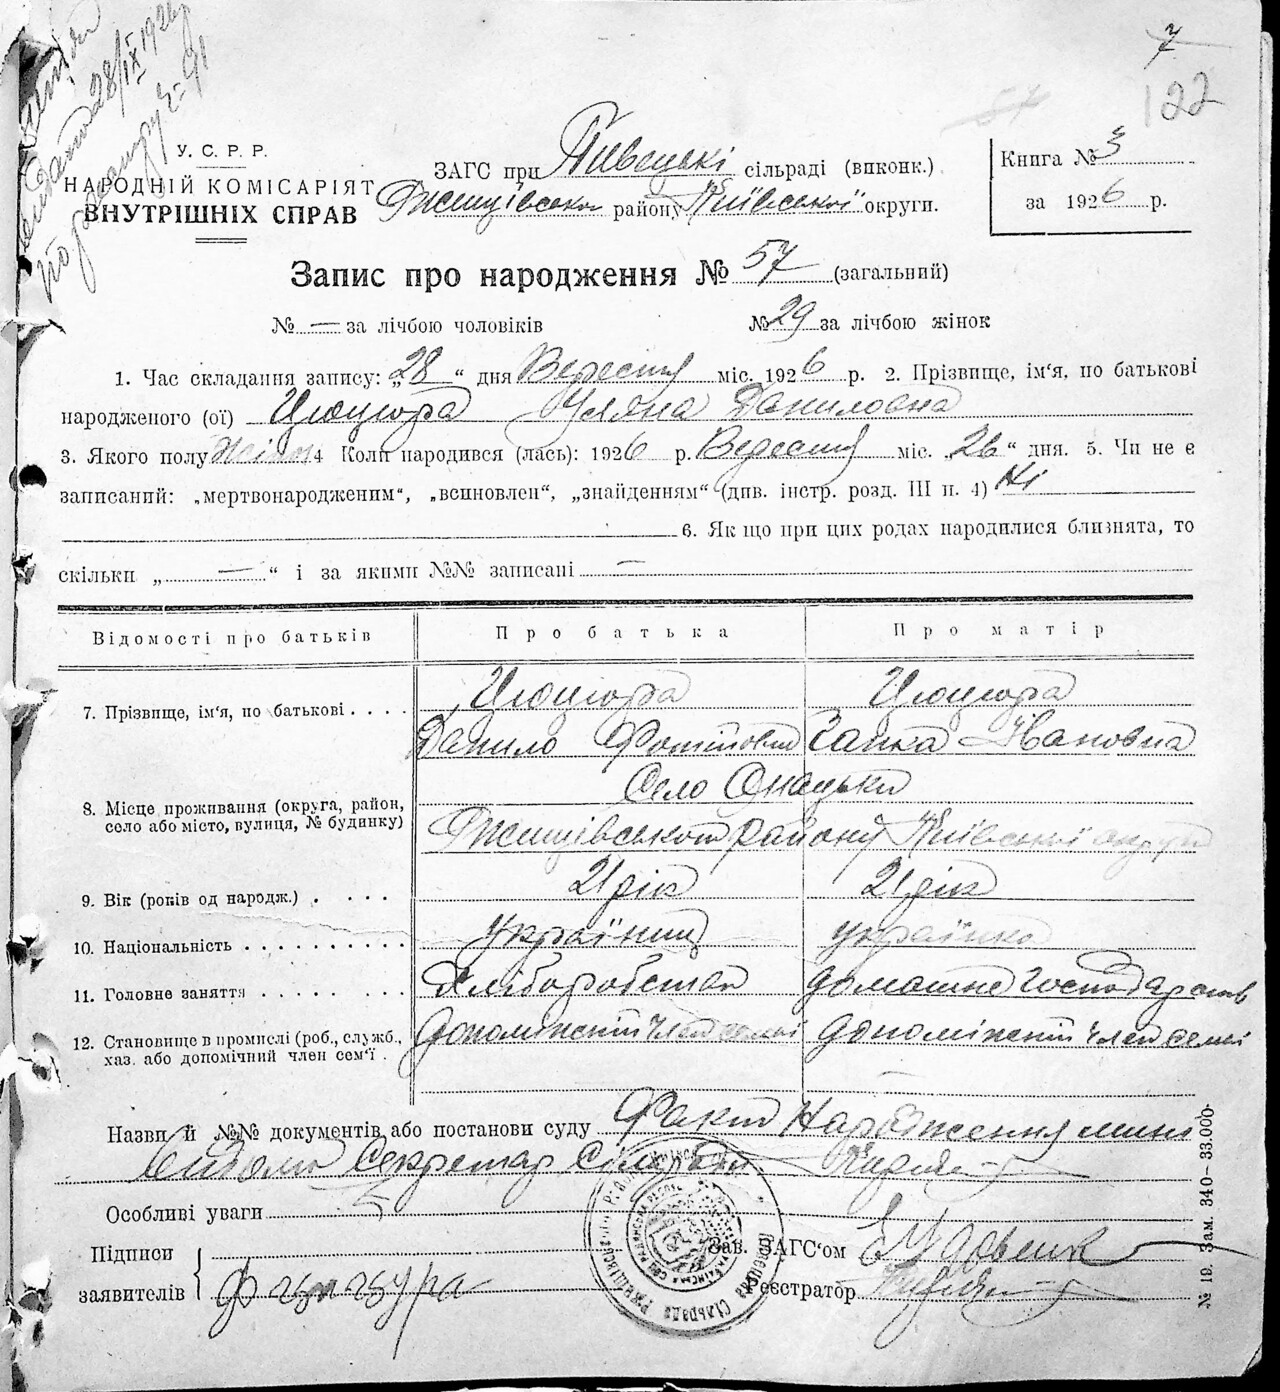 7
122
57
видано 28/IX 1926р
по реєстру № 91
У. С. Р. Р.
НАРОДНІЙ КОМІСАРІЯТ
ВНУТРІШНІХ СПРАВ
ЗАГС при Пивецькі сільраді (виконк.)
Ржищівського району Київської округи.
Книга № 3
за 1926 р.
Запис про народження № 57 (загальний)
№ — за лічбою чоловіків № 29 за лічбою жінок
1. Час складання запису: „28“ дня Вересня міс. 1926 р. 2. Прізвище, ім‘я, по батькові
народженого (ої) Цюцюра Уляна Даниловна
3. Якого полу Жіноч 4 Коли народився (лась): 1926 р. Вересня міс. „26“ дня. 5. Чи не є
записаний: „мертвонародженим“, „всиновлен“, „знайденням“ (див. інстр. розд. III п. 4) Ні
6. Як що при цих родах народилися близнята, то
скільки „ — “ і за якими №№ записані —
Відомості про батьків Про батька Про матір
7. Прізвище, ім‘я, по батькові . . . . Цюцюра Цюцюра
Данило Ганка Івановна
8. Місце проживання (округа, район,
село або місто, вулиця, № будинку)
Село Онацьки
Ржищівського району Київської округи
9. Вік (років од народж.) . . . . . 21 рік 21 рік
10. Національність . . . . . . . . . . українець українка
11. Головне заняття . . . . . . . . Хліборобство домашнє господарство
12. Становище в промислі (роб., служб.,
хаз. або допомічний член сем‘ї .
допоміжний член семьї допоміжний член семьї
Назви й №№ документів або постанови суду Факт Народження мині
відомо Секретар Сільради
Особливі уваги
Підписи
заявителів
Зав. ЗАГС‘ом
Реєстратор
№ 19. Зам. 340—33.000